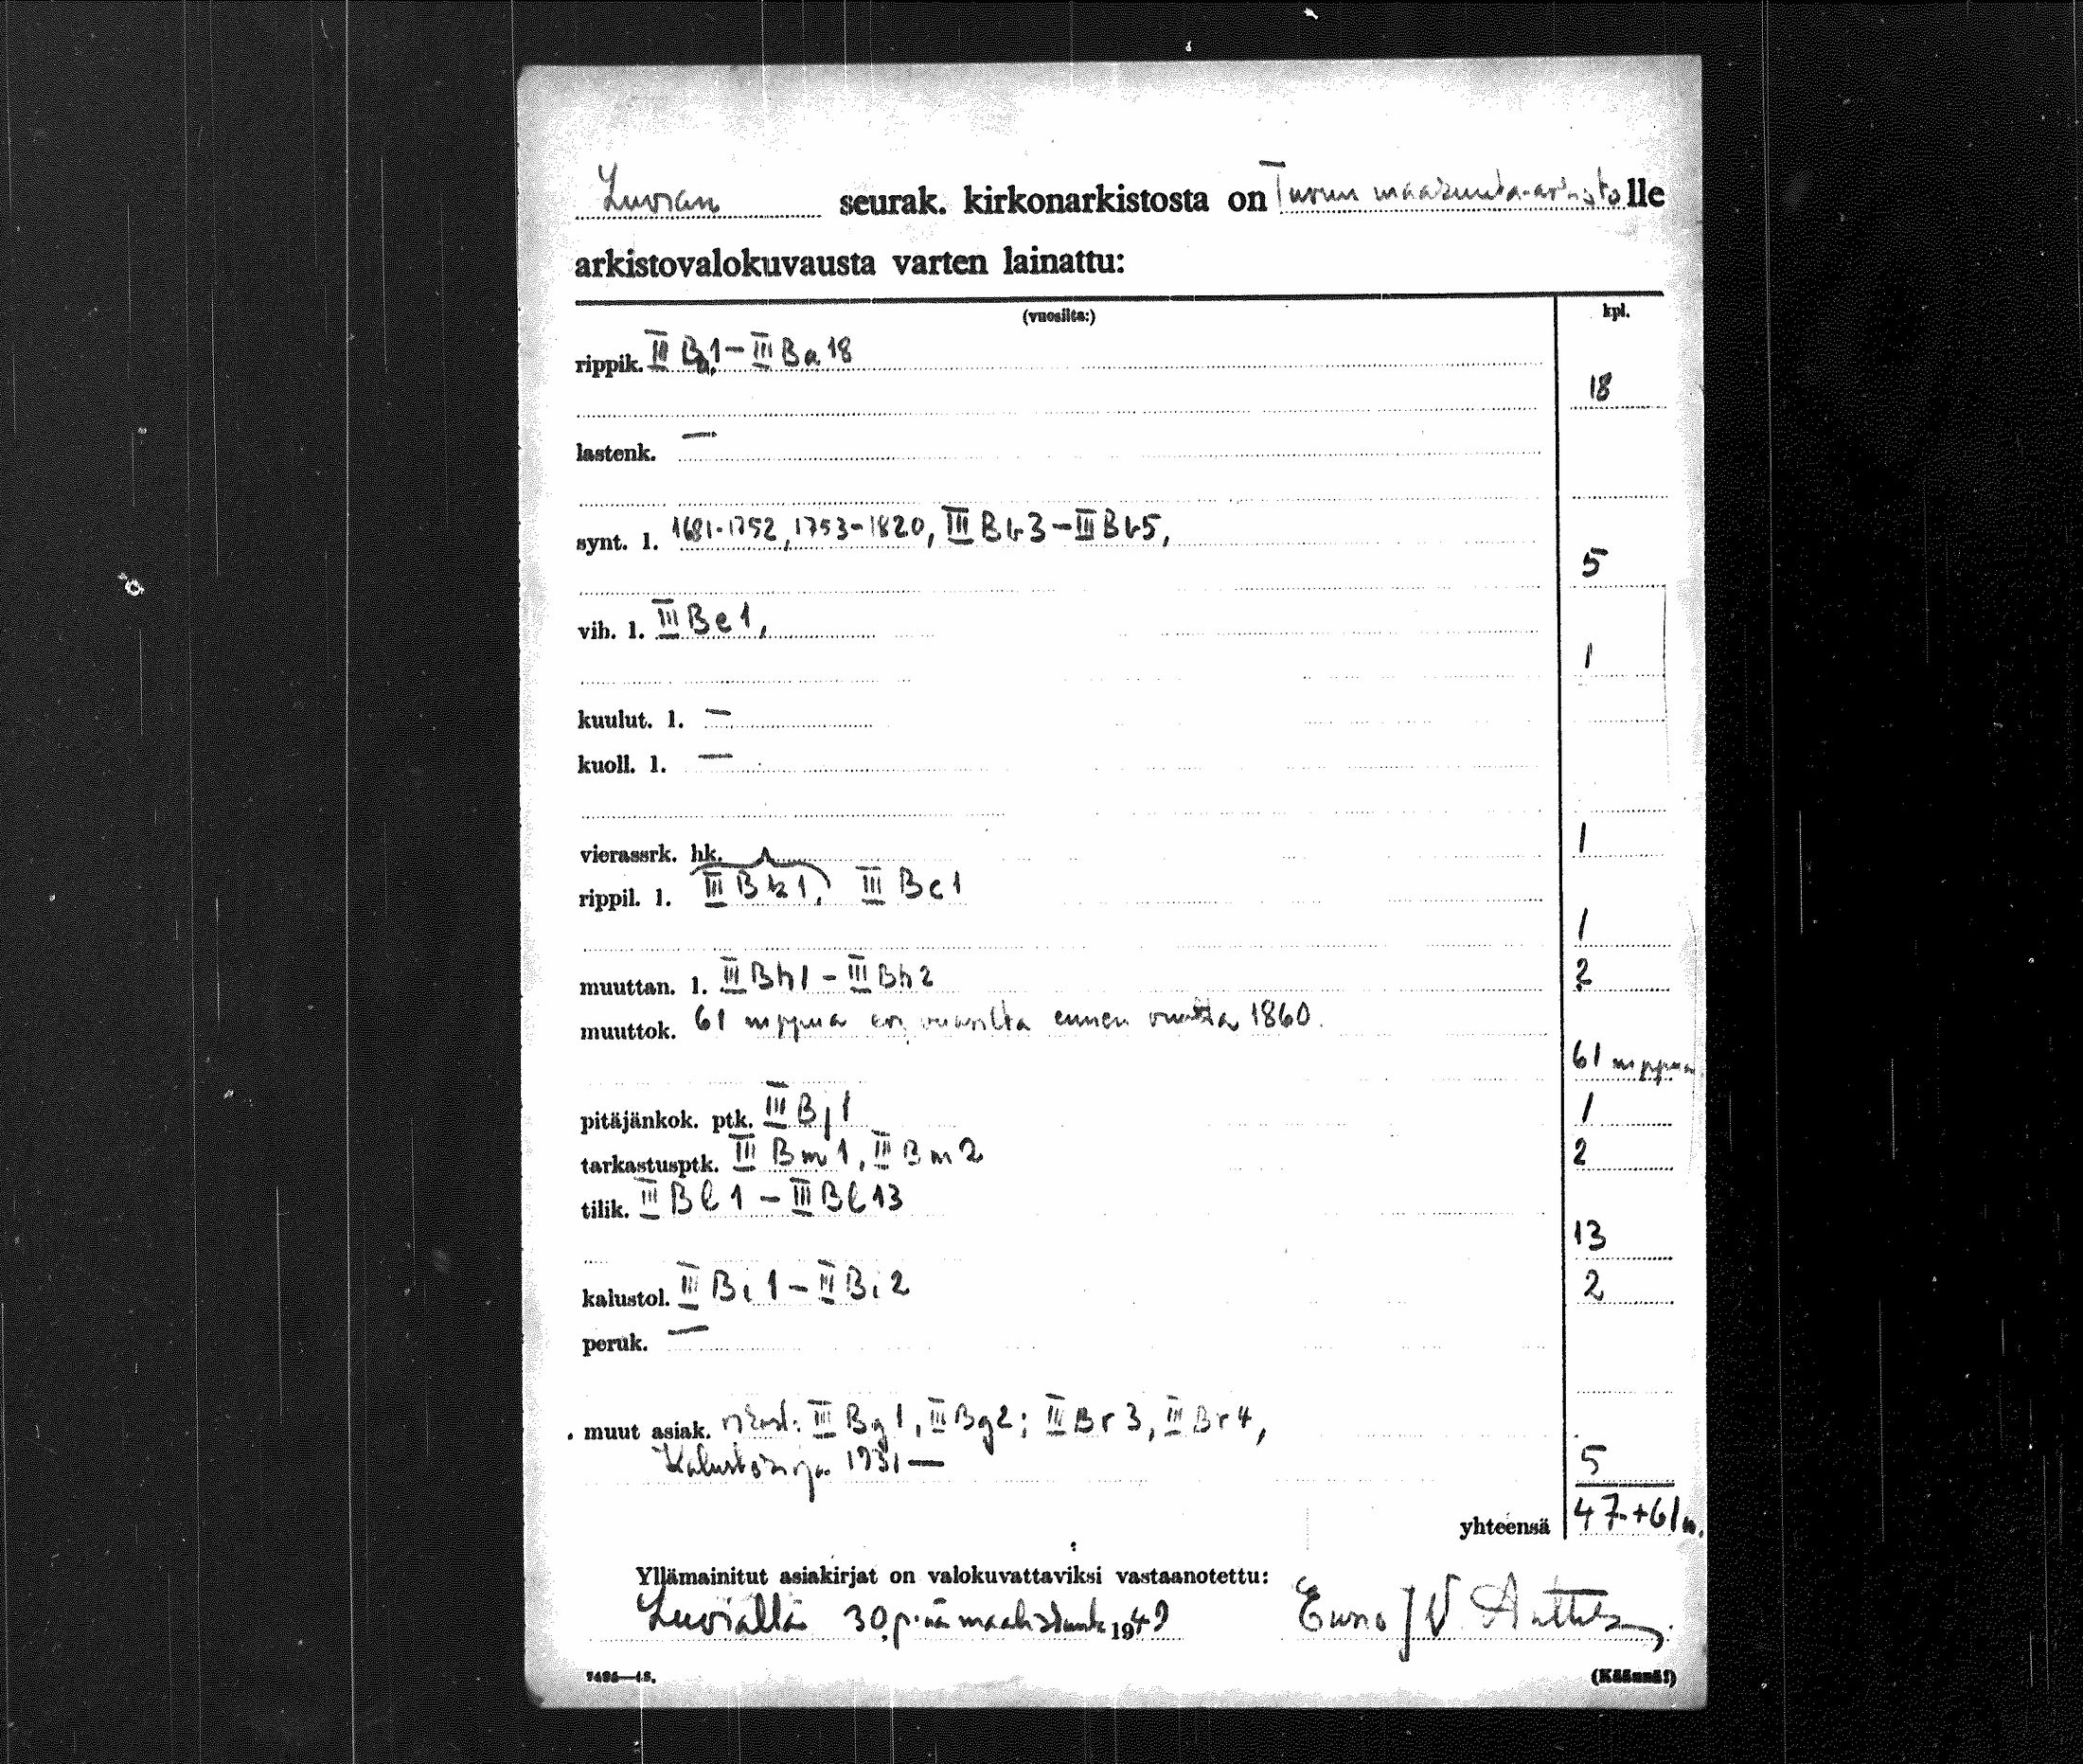 Luvian seurak. kirkonarkistosta on Turun maakunta-arkistolle
arkistovalokuvausta varten lainattu:
(vuosilta:) kpl.
rippik. III Ba 1 – III Ba 18
18
lastenk. —
synt. l. 1681-1752, 1753-1820, III Bb 3 – III Bb 5,
5
vih. l. III Be 1,
1
kuulut. l. —
kuoll. l. —
vierassrk. hk. 1
rippil. l. III Bk 1, III Bc 1
1
muuttan. l. III Bh 1 – III Bh 2 2
muuttok. 61 nippua eri vuosilta ennen vuotta 1860.
61 nippua
pitäjänkok. ptk. III Bj 1 1
tarkastusptk. III Bm 1, III Bm 2 2
tilik. III Bl 1 – III Bl 13
13
kalustol. III Bi 1 – III Bi 2 2
peruk. —
muut asiak. III Bg 1, III Bg 2; III Br 3, III Br 4,
Kalustokirja 1931 — 5
yhteensä 47 + 61 n.
Yllämainitut asiakirjat on valokuvattaviksi vastaanotettu:
Luvialla 30 p:nä maaliskuuta 1949
(Käännä!)